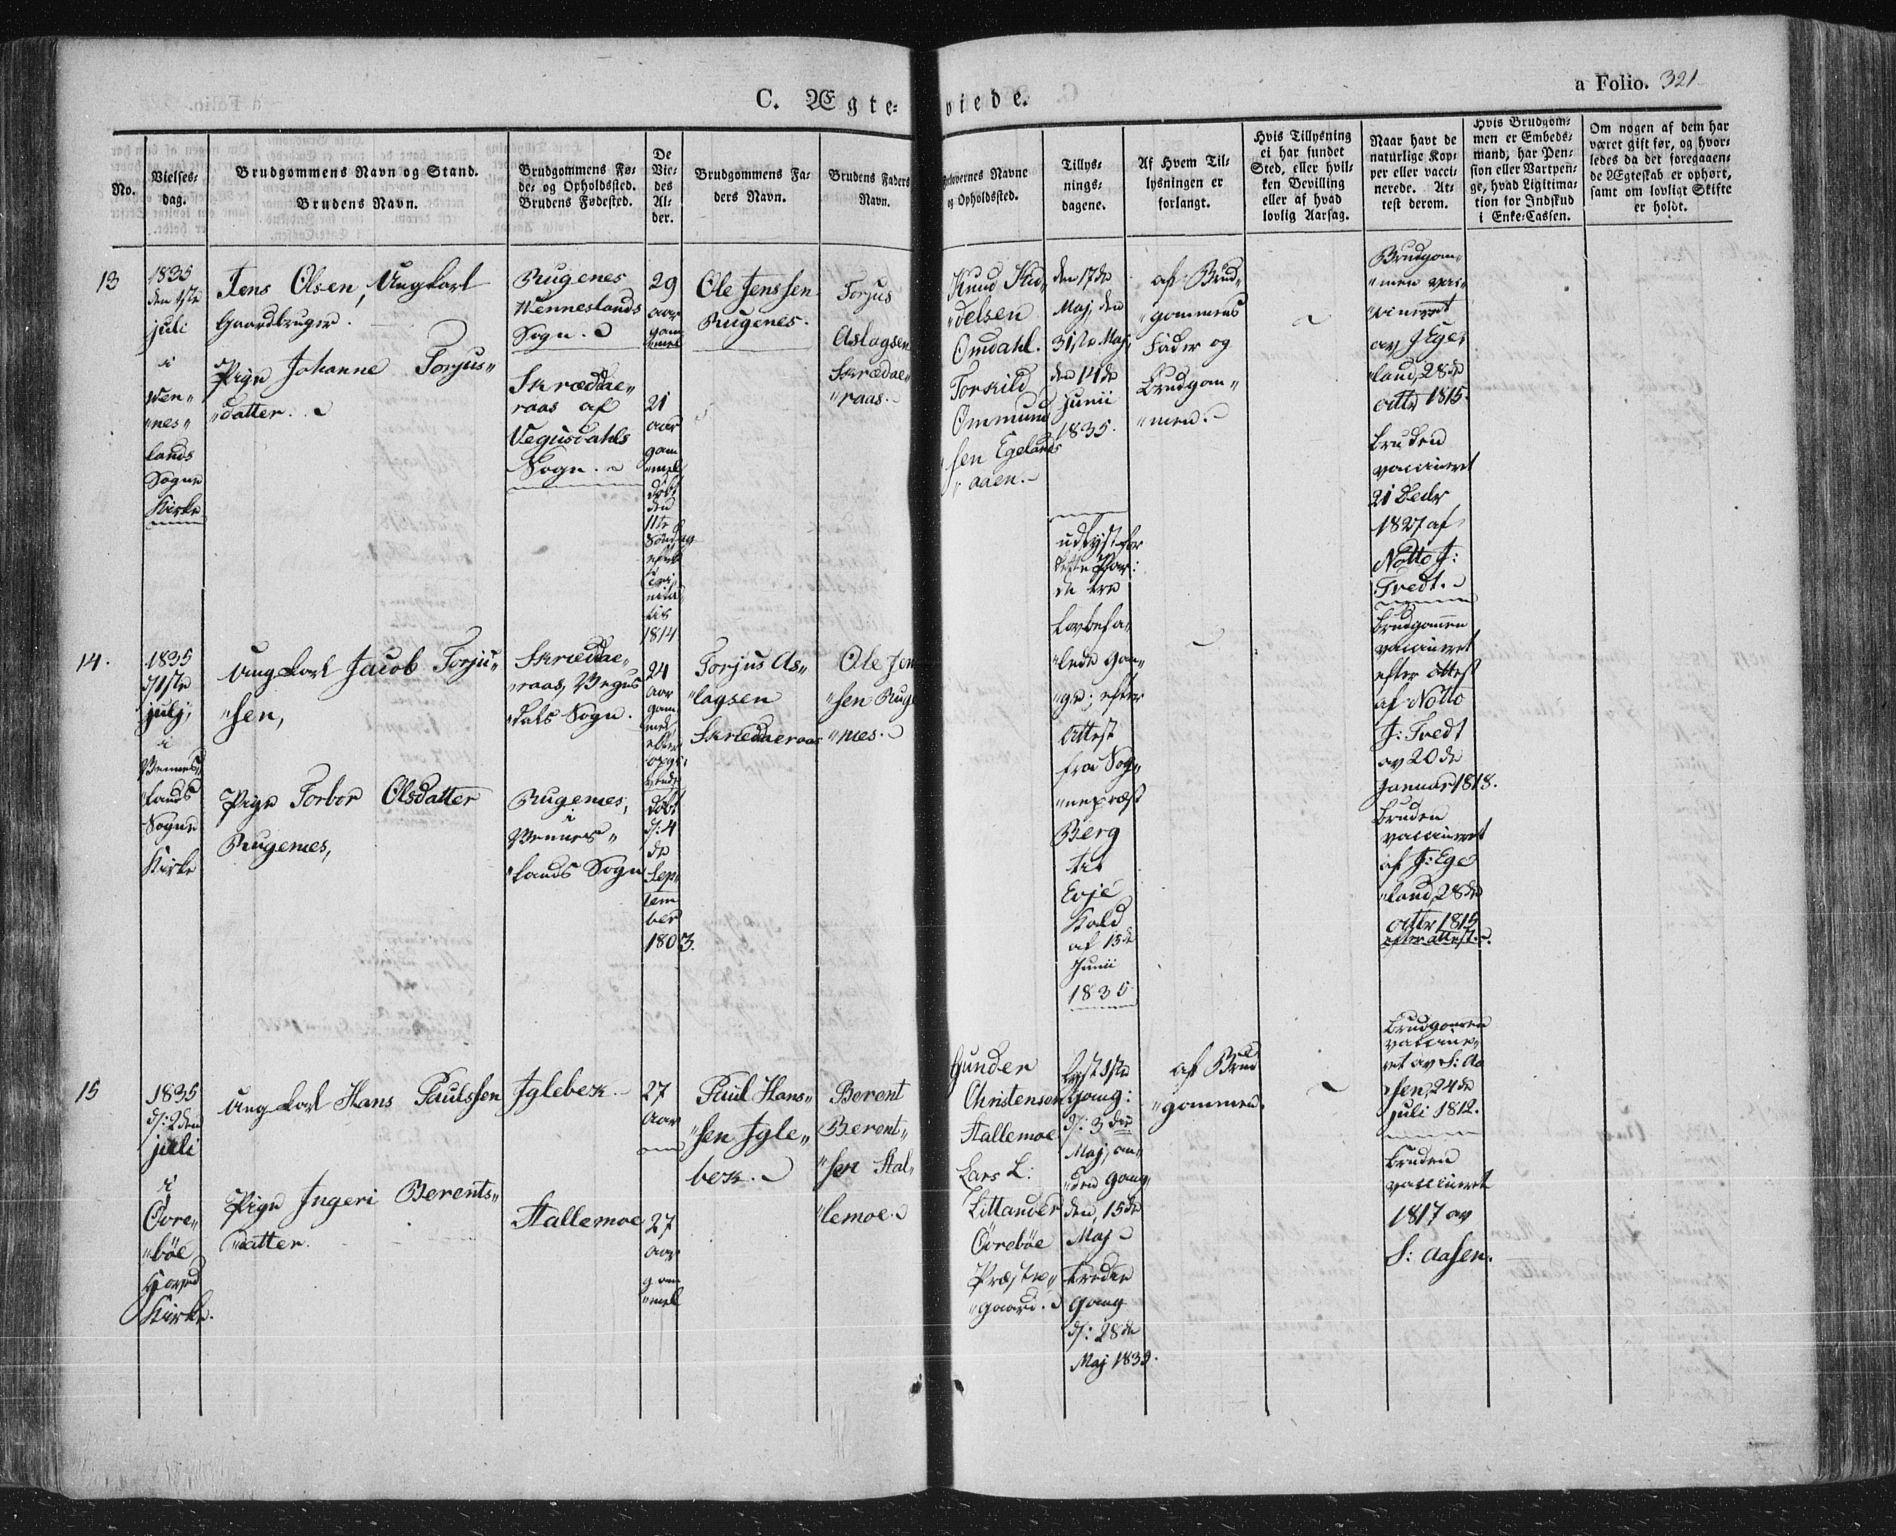 C. Ægteviede.
a Folio. 321
No.
Vielsesdag.
Brudgommens Navn og Stand.
Brudens Navn.
Brudgommens Føde- og Opholdssted.
Brudens Fødested.
De Viedes Alder.
Brudgommens Faders Navn.
Brudens Faders Navn.
Forlovernes Navne og Opholdssted.
Tillysningsdagene.
Af Hvem Tillysningen er forlangt.
Hvis Tillysning ei har fundet Sted, eller hvilken Bevilling eller af hvad lovlig Aarsag.
Naar havt de naturlige Kopper eller vaccinerede. Attest derom.
Hvis Brudgommen er Embedsmand, har Pension eller Vartpenge, hvad Ligitimation for Indskud i Enke-Cassen.
Om nogen af dem har været gift før, og hvorledes da det foregaaende Ægteskab er ophørt, samt om lovligt Skifte er holdt.
13
1835
den 1ste
juli
i
Wen„
„nes„
lands
Sogne
Kirke
Jens Olsen, Ungkarl
Gaardbruger.
Pige Johanne Torjus„
„datter.
Rugenes
Wenneslands
Sogn.
Skrædae„
raas af
Vegusdahls
Sogn.
29
aar
gam
mel
21
aar
gam
mel
døbt
den
11te
Søndag
efter
Tri
nita
tis
1814
Ole Jenssen
Rugenes.
Torjus
Aslagsen
Skrædae„
„raas.
Knud
„delsen
Omdahl.
Torkild
Ommund
sen Egelands
aaen.
den 17de
Maj, den
31ste Maj,
den 14de
Junii
1835.
af Brud„
„gommens
Fader og
Brudgom„
„men.
Brudgom„
„men vac„
„cineret
av J Ege„
„land, 28de
octbr 1815.
bruden
vaccineret
21 Decbr
1827 af
Notto J:
Tvedt.
14.
1835
d/1ste
julj,
i
Vennes„
„lands
Sogne
Kirke
Ungkarl Jacob Torju„
„sen,
Pige Torbor Olsdatter
Rugenes,
Skrædae„
raas, Vegus
dals Sogn.
Rugenes,
i
Vennes„
„lands Sogn
24
aar
gam
mel
efter
opgi
vende
døbt
d/: 4
de
Sep„
tem
ber
1803.
Torjus As„
„lagsen
Skrædaeraas
Ole Jen
„sen Ruge
„nes.
udlyst for
dette Par:
de tre
Lovbefa„
„lede Gan„
„ge; efter
Attest
fra Sog„
„nepræst
Berg
til
Evje
Kald
af 15de
Junii
1835
Brudgommen
vaccineret
efter attest
af Notto
J: Tvedt
av 20de
Januar 1818.
bruden
vaccineret
af J: Ege
„land, 28de
octbr 1815
efter attest.
15
1835
d/: 2den
juli
i
Øvre„
„bøe
Hoved
Kirke.
Ungkarl Hans Paulssen
Pige Ingeri Berents„
„datter.
Iglebek.
Stallemoe
27
aar
27
aar
gam
„mel
Paul Hans„
„sen Igle„
bek.
Berent
Berent„
„sen Stal„
„lemoe.
Gunder
Christensen
Stallemoe
Lars L:
Littander
Øvrebøe
Præste„
„gaard.
Lyst 1ste
Gang:
d/: 3die
Maj, an„
„den Gang
den, 15de
Maj
tredie
Gang
d/: 28de
af Brud
„gommen.
Brudgommen
vaccine„
ret av S: Aa
„sen, 24de
juli 1812.
bruden
vaccineret
1817 av
S: Aasen.